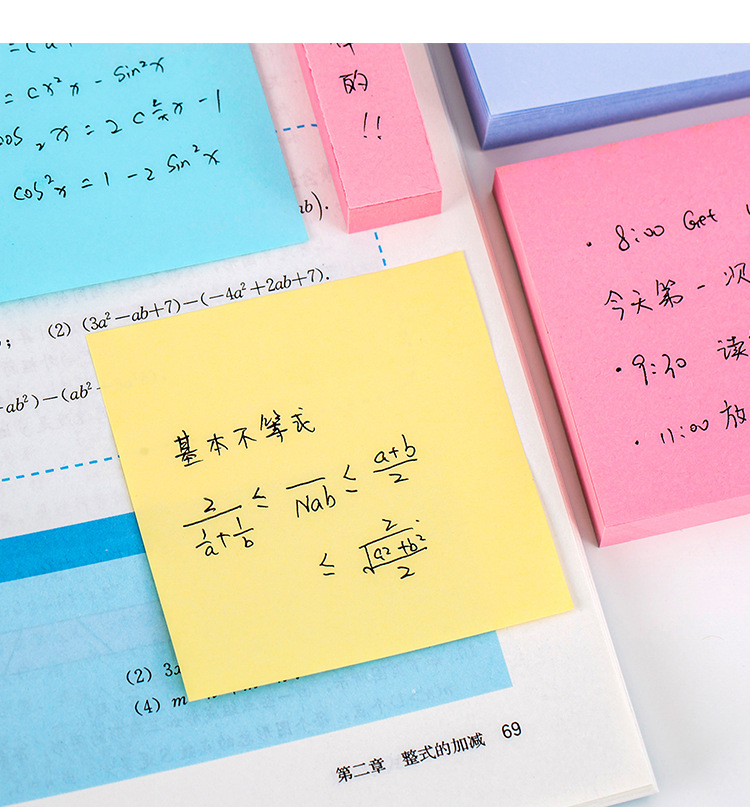 = cx²x - sin²x
cos 2x = 2c²x - 1
cos²x = 1 - 2 sin²x
的
!!
ab).
(2) (3a²-ab+7)-(-4a²+2ab+7).
ab²)-(ab²
基本不等式
2/(1/a+1/b) ≤ √ab ≤ (a+b)/2
≤ 2/√(a²+b²)/2
· 8:00 Get
今天第一次
· 9:30 读
· 11:00 放
(2) 3
(4) m
第二章 整式的加减 69